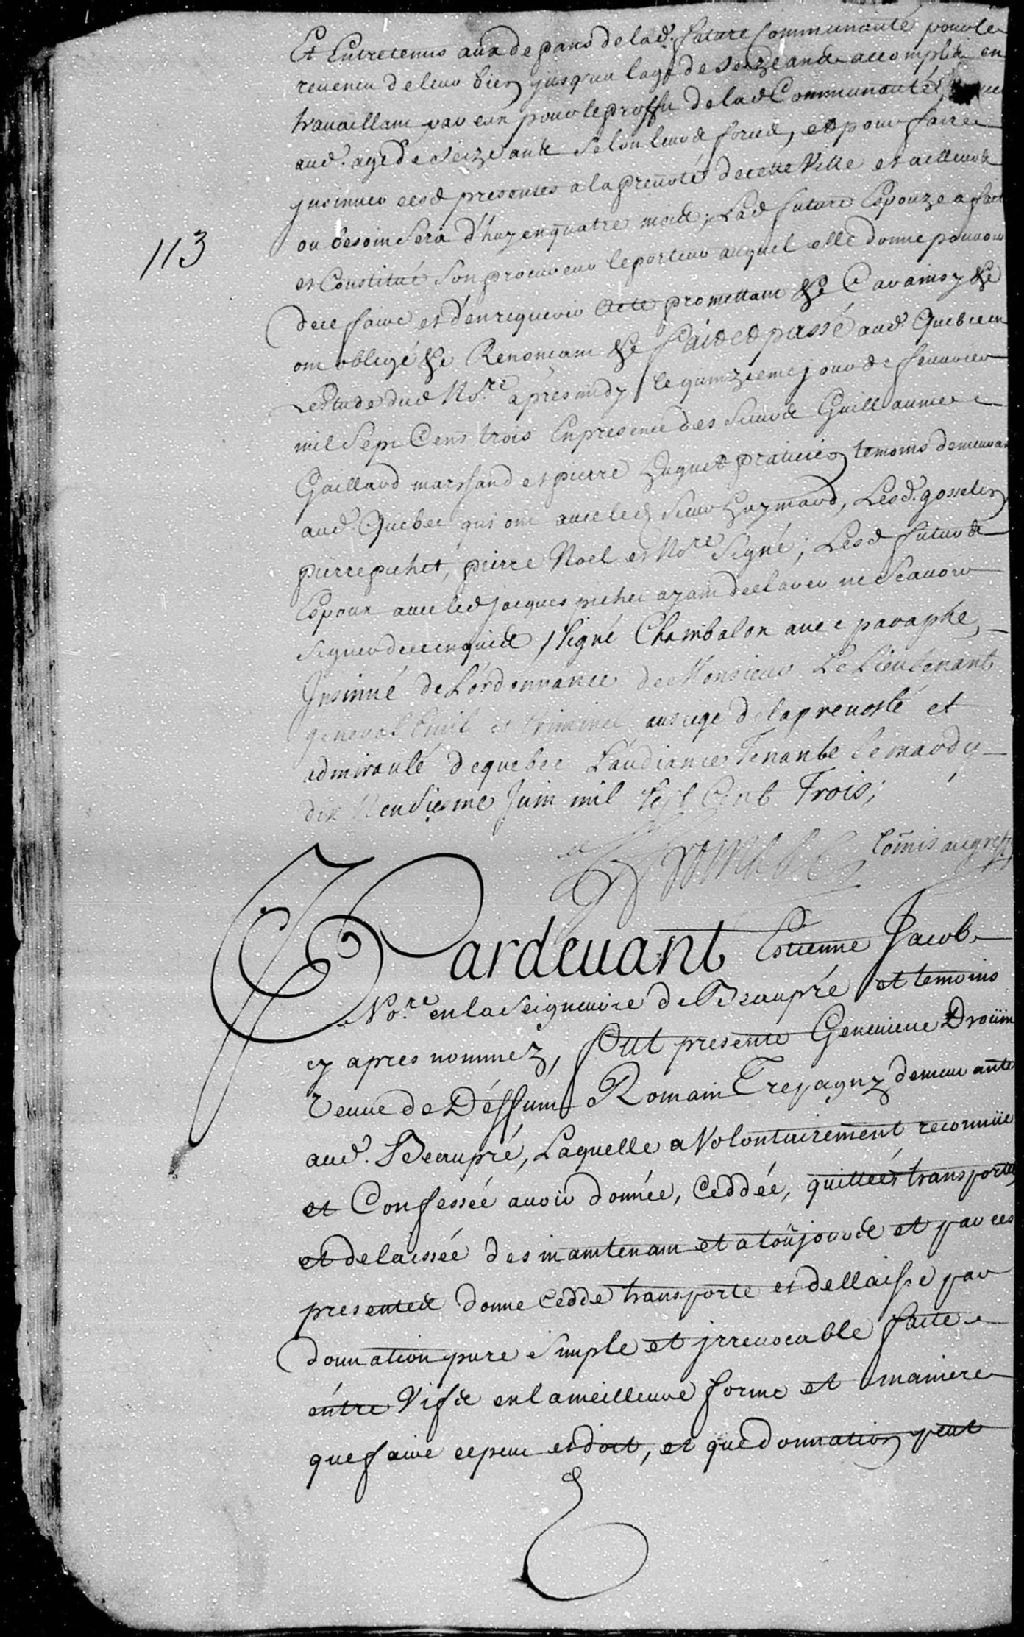 Et Entretenus aux depans de lad. future Communauté pour le
revenu de leur bien jusqu'a lage de seize ans accomplis en
travaillant par eux pour le proffit de lad Communauté
aud. age de seize ans selon leurs forces, et pour faire
jnsinuer cesd presentes a la prevosté de cette Ville et ailleurs
ou besoin sera d'huy en quatre mois, Lad future Espouze a fait
et Constitué son procureur le porteur auquel elle donne pouvoir
de ce faire et d'en requerir acte promettant &c
ont obligé &c Renonçant &c fait et passé aud. Quebec en
Lestude dud No.re apres midy le quinzieme jour de fevrier
mil sept Cens trois En presence des sieurs Guillaume
Gaillard marchand et pierre huguet praticien temoins demeurant
aud. Quebec qui ont avec led sieur haymard, Lesd. gosselin
pierre pichet, pierre Noel et No.re signé; Lesd futurs
Espoux avec led jacques pichet ayant declarer ne scavoir
signer de ce enquis, signé Chambalon avec paraphe,
Jnsinué de L'ordonnance de Monsieur Le Lieutenant
general Civil et Criminel au siege de la prevosté et
admirauté de quebec L'audiance Tenante le mardy
dix Neusieme Juin mil sept Cent Trois;
Commis au greffe
113
Pardevant Estienne Jacob
No.re en la seigneurie de Beaupré et temoins
cy apres nommez, fut presente Genevieve Droüin
veuve de Deffunt Romain Trepagny demeurante
aud. Beaupré, Laquelle a Volontairement reconnüe
et Confessée avoir donnée, Ceddée, quittée transportée
et delaissée des maintenant et a toûjours et par ces
presentes donne cedde transporte et dellaisse par
donnation pure simple et jrrevocable faite
éntre Vifs en la meilleure forme et maniere
que faire ce peut et doit, et que donnation peut